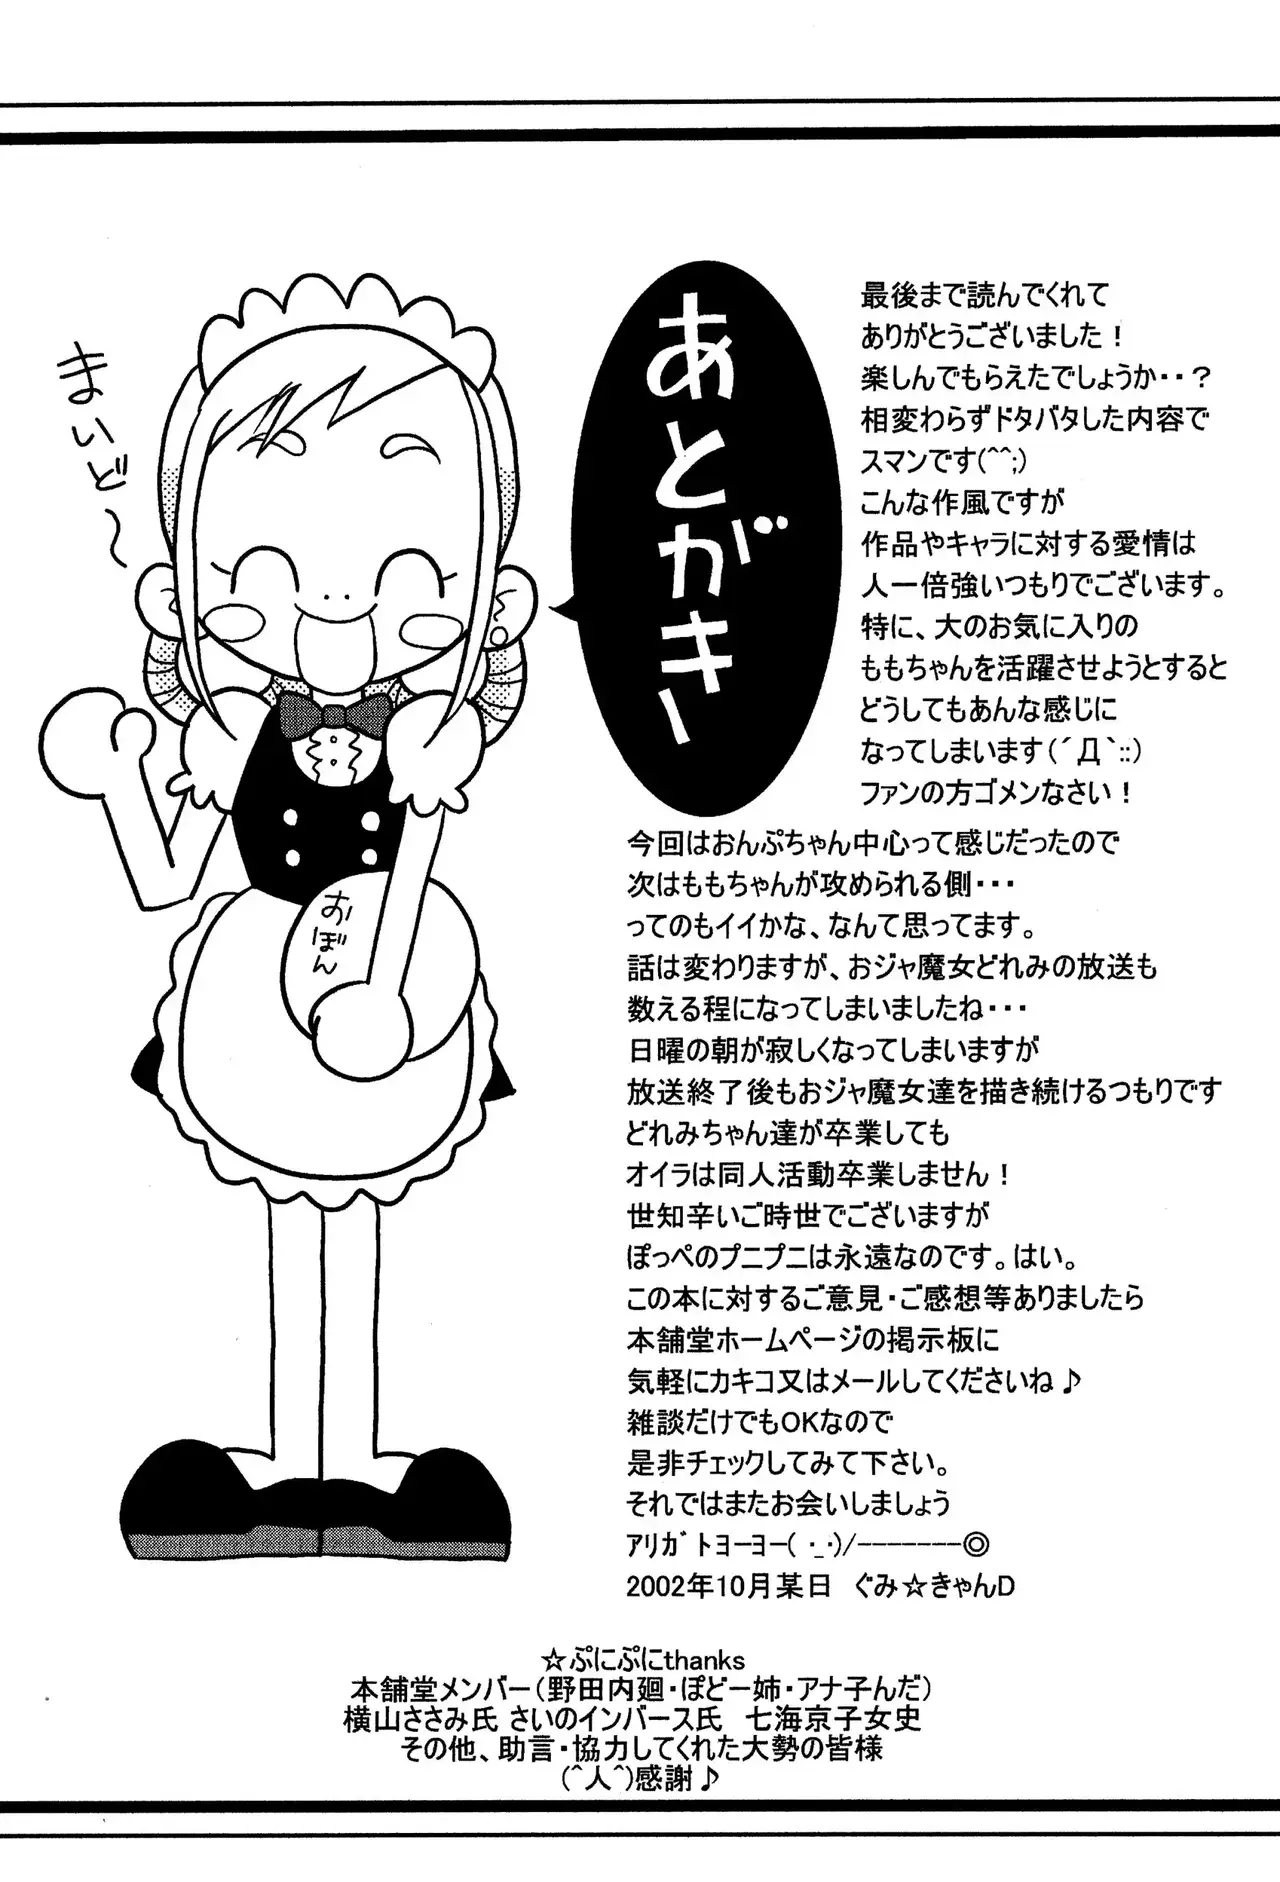 まいど～
あとがきー
おぼん
最後まで読んでくれて
ありがとうございました！
楽しんでもらえたでしょうか・・？
相変わらずドタバタした内容で
スマンです(^^;)
こんな作風ですが
作品やキャラに対する愛情は
人一倍強いつもりでございます。
特に、大のお気に入りの
ももちゃんを活躍させようとすると
どうしてもあんな感じに
なってしまいます(´Д`::)
ファンの方ゴメンなさい！
今回はおんぷちゃん中心って感じだったので
次はももちゃんが攻められる側・・・
ってのもイイかな、なんて思ってます。
話は変わりますが、おジャ魔女どれみの放送も
数える程になってしまいましたね・・・
日曜の朝が寂しくなってしまいますが
放送終了後もおジャ魔女達を描き続けるつもりです
どれみちゃん達が卒業しても
オイラは同人活動卒業しません！
世知辛いご時世でございますが
ぽっぺのプニプニは永遠なのです。はい。
この本に対するご意見・ご感想等ありましたら
本舗堂ホームページの掲示板に
気軽にカキコ又はメールしてくださいね♪
雑談だけでもOKなので
是非チェックしてみて下さい。
それではまたお会いしましょう
ｱﾘｶﾞﾄﾖｰﾖｰ( ･_･)/-------◎
2002年10月某日　ぐみ☆きゃんD
☆ぷにぷにthanks
本舗堂メンバー（野田内廻・ぽどー姉・アナ子んだ）
横山ささみ氏 さいのインバース氏　七海京子女史
その他、助言・協力してくれた大勢の皆様
(^人^)感謝♪